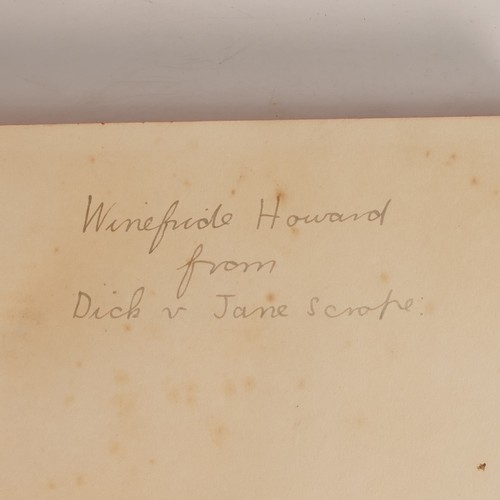 Winefride Howard
from
Dick v Jane Scrope.